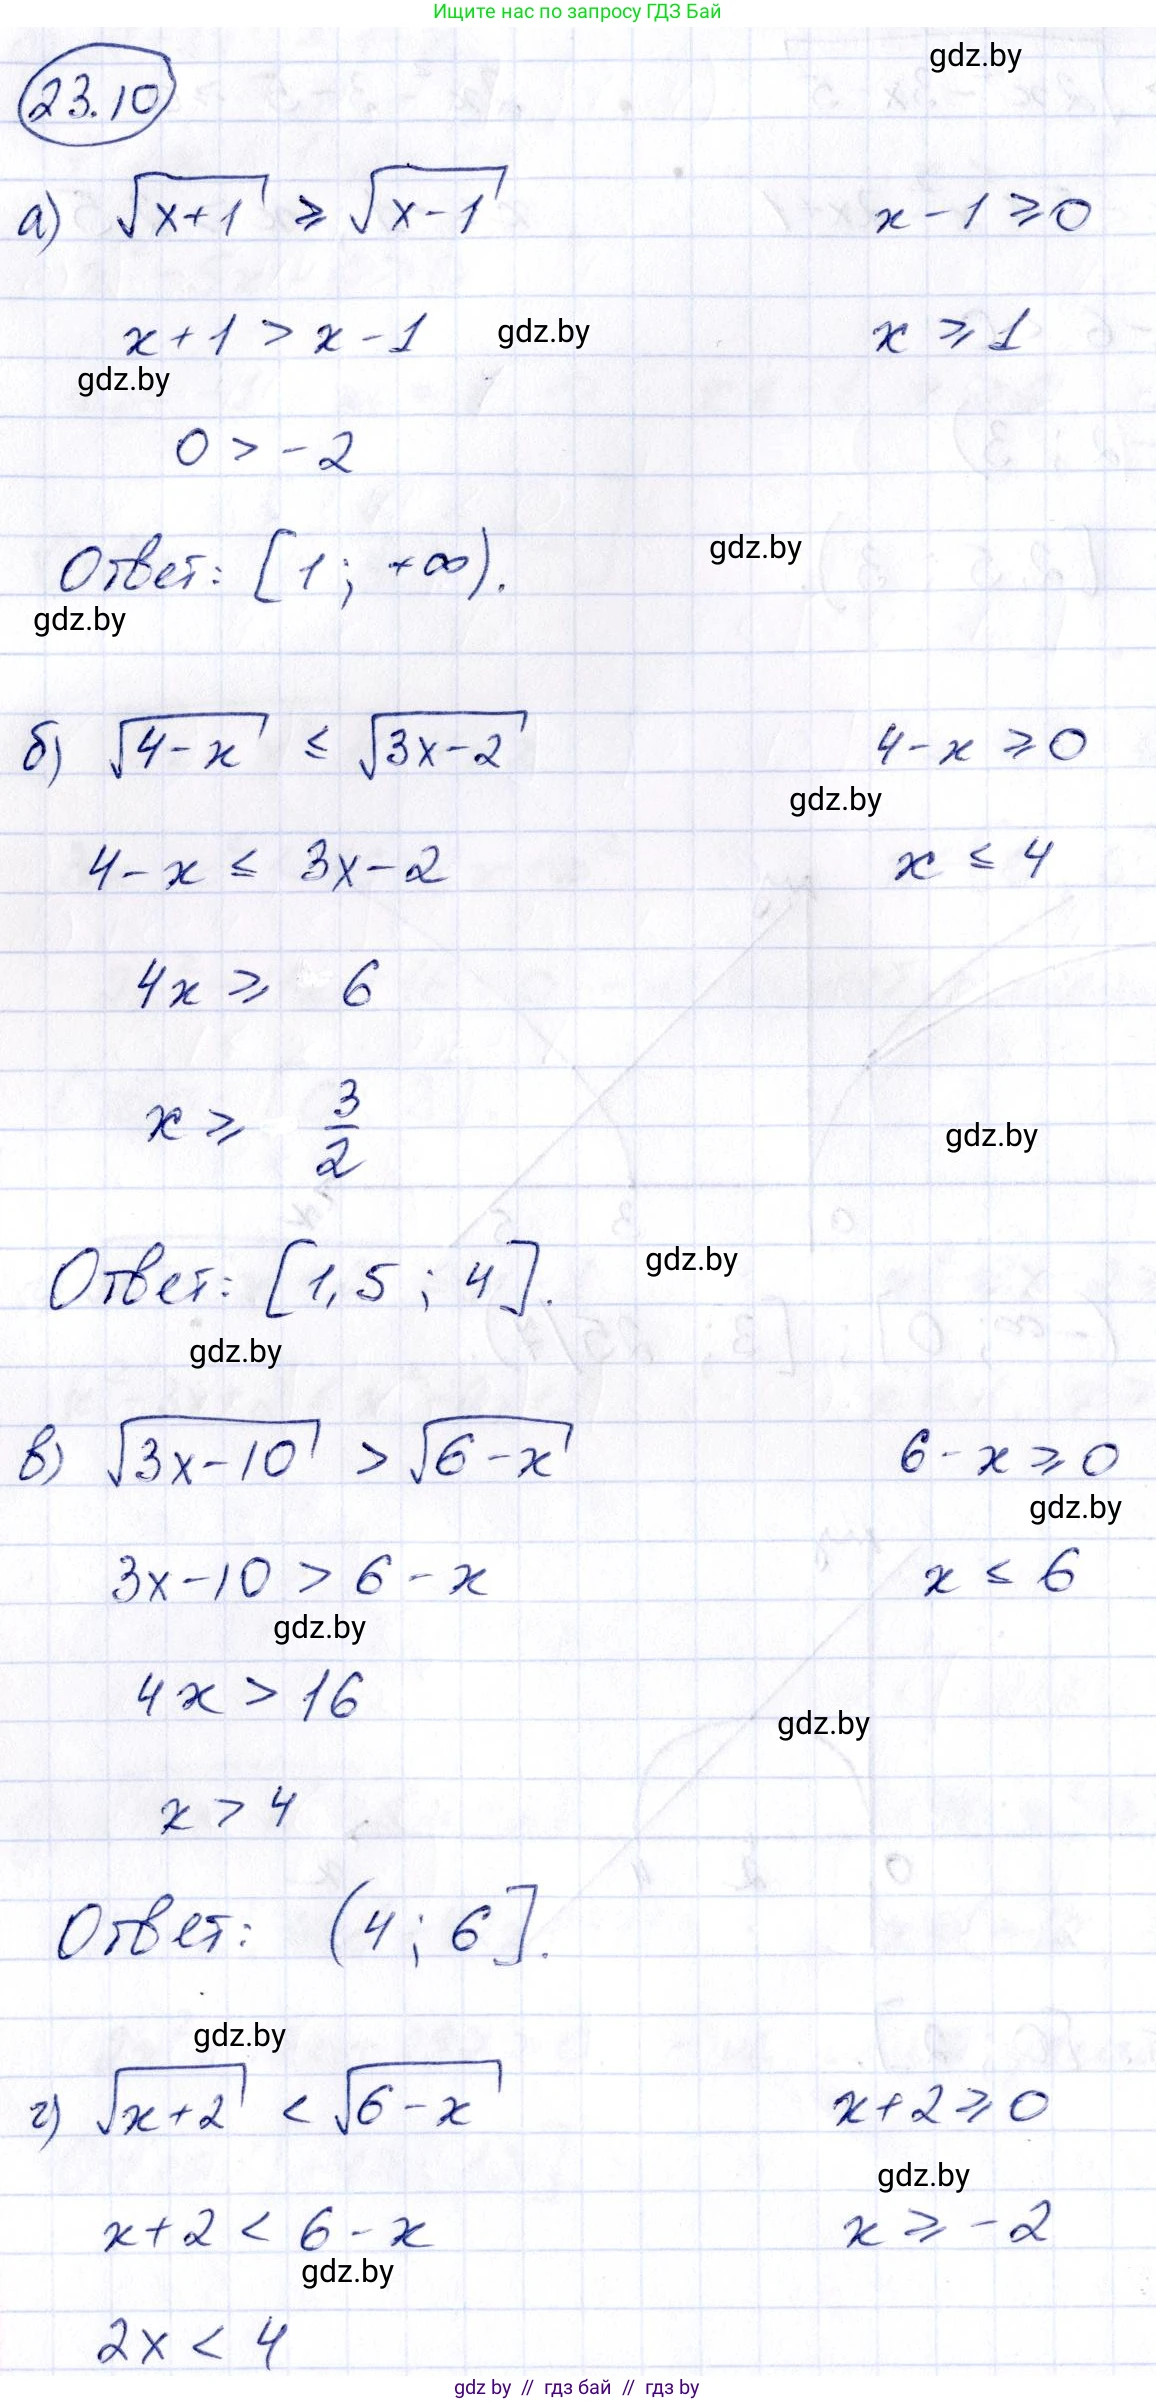 Ищите нас по запросу ГДЗ Бай
gdz.by
23.10
а) √(x+1) ≥ √(x-1) x-1≥0
x+1 > x-1 gdz.by x ≥ 1
gdz.by
0 > -2
Ответ: [1; +∞). gdz.by
gdz.by
б) √(4-x) ≤ √(3x-2) 4-x ≥ 0
gdz.by
4-x ≤ 3x-2 x ≤ 4
4x ≥ 6
x ≥ 3/2 gdz.by
Ответ: [1,5; 4]. gdz.by
gdz.by
в) √(3x-10) > √(6-x) 6-x ≥ 0
gdz.by
3x-10 > 6-x x ≤ 6
gdz.by
4x > 16
gdz.by
x > 4
Ответ: (4; 6].
gdz.by
г) √(x+2) < √(6-x) x+2 ≥ 0
gdz.by
x+2 < 6-x x ≥ -2
gdz.by
2x < 4
gdz by // гдз бай // гдз by